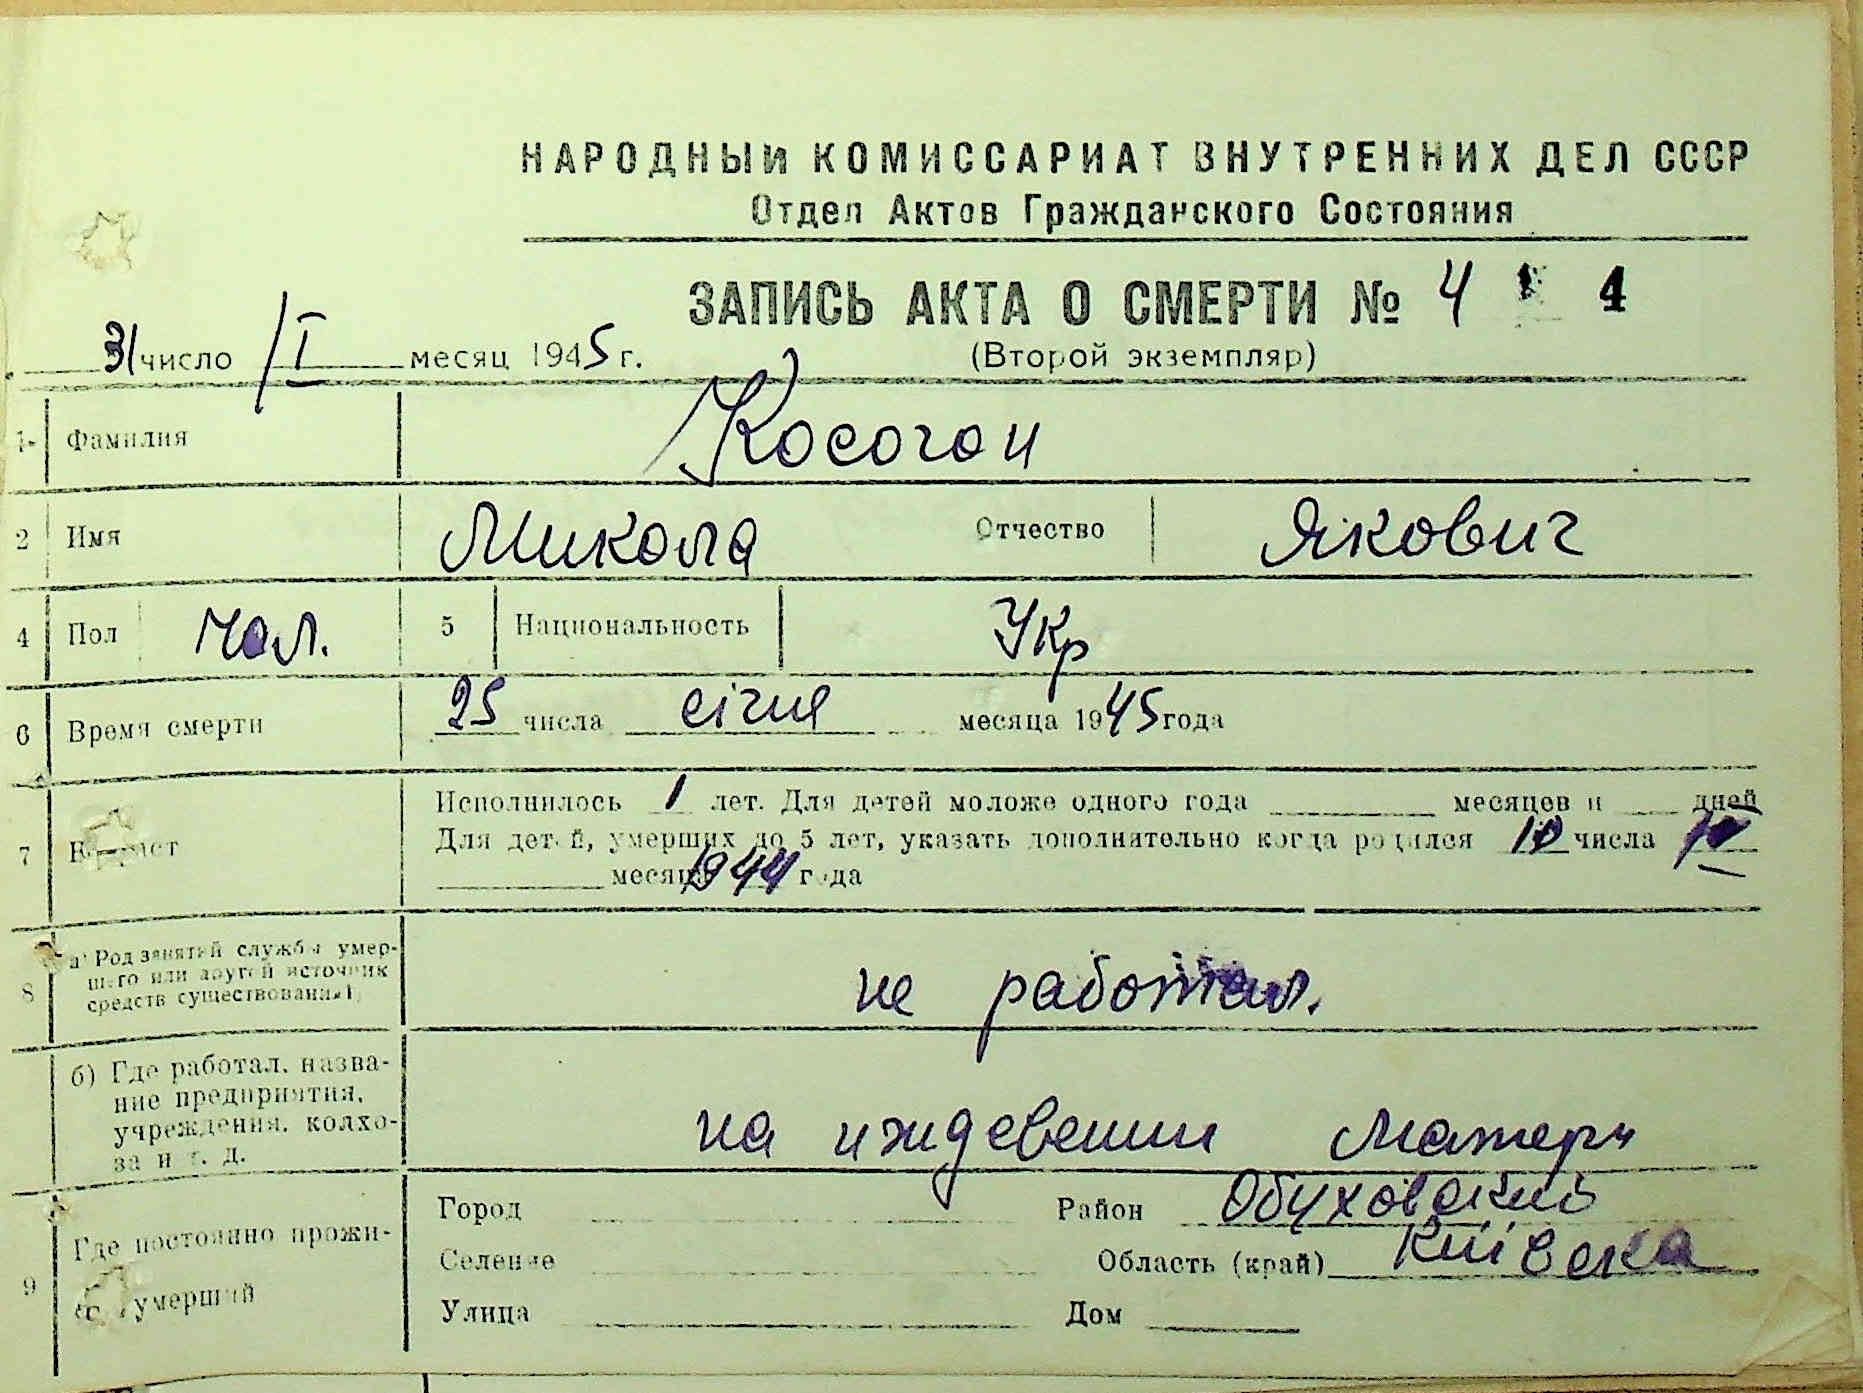 НАРОДНЫЙ КОМИССАРИАТ ВНУТРЕННИХ ДЕЛ СССР
Отдел Актов Гражданского Состояния
ЗАПИСЬ АКТА О СМЕРТИ № 4 4
31 число I месяц 1945 г. (Второй экземпляр)
1. Фамилия Косогон
2 Имя Микола Отчество Якович
4 Пол чол. 5 Национальность Укр
6 Время смерти 25 числа січня месяца 1945 года
7 Возраст Исполнилось 1 лет. Для детей моложе одного года месяцев и дней
Для детей, умерших до 5 лет, указать дополнительно когда родился 10 числа
месяца 1944 года
8 а) Род занятий службы умер-
шего или другой источник
средств существования)
не работал.
б) Где работал, назва-
ние предприятия,
учреждения, колхо-
за и т. д.
на иждевении матери
9 Где постоянно прожи-
умерший
Город Район Обуховский
Селение Область (край) Київська
Улица Дом